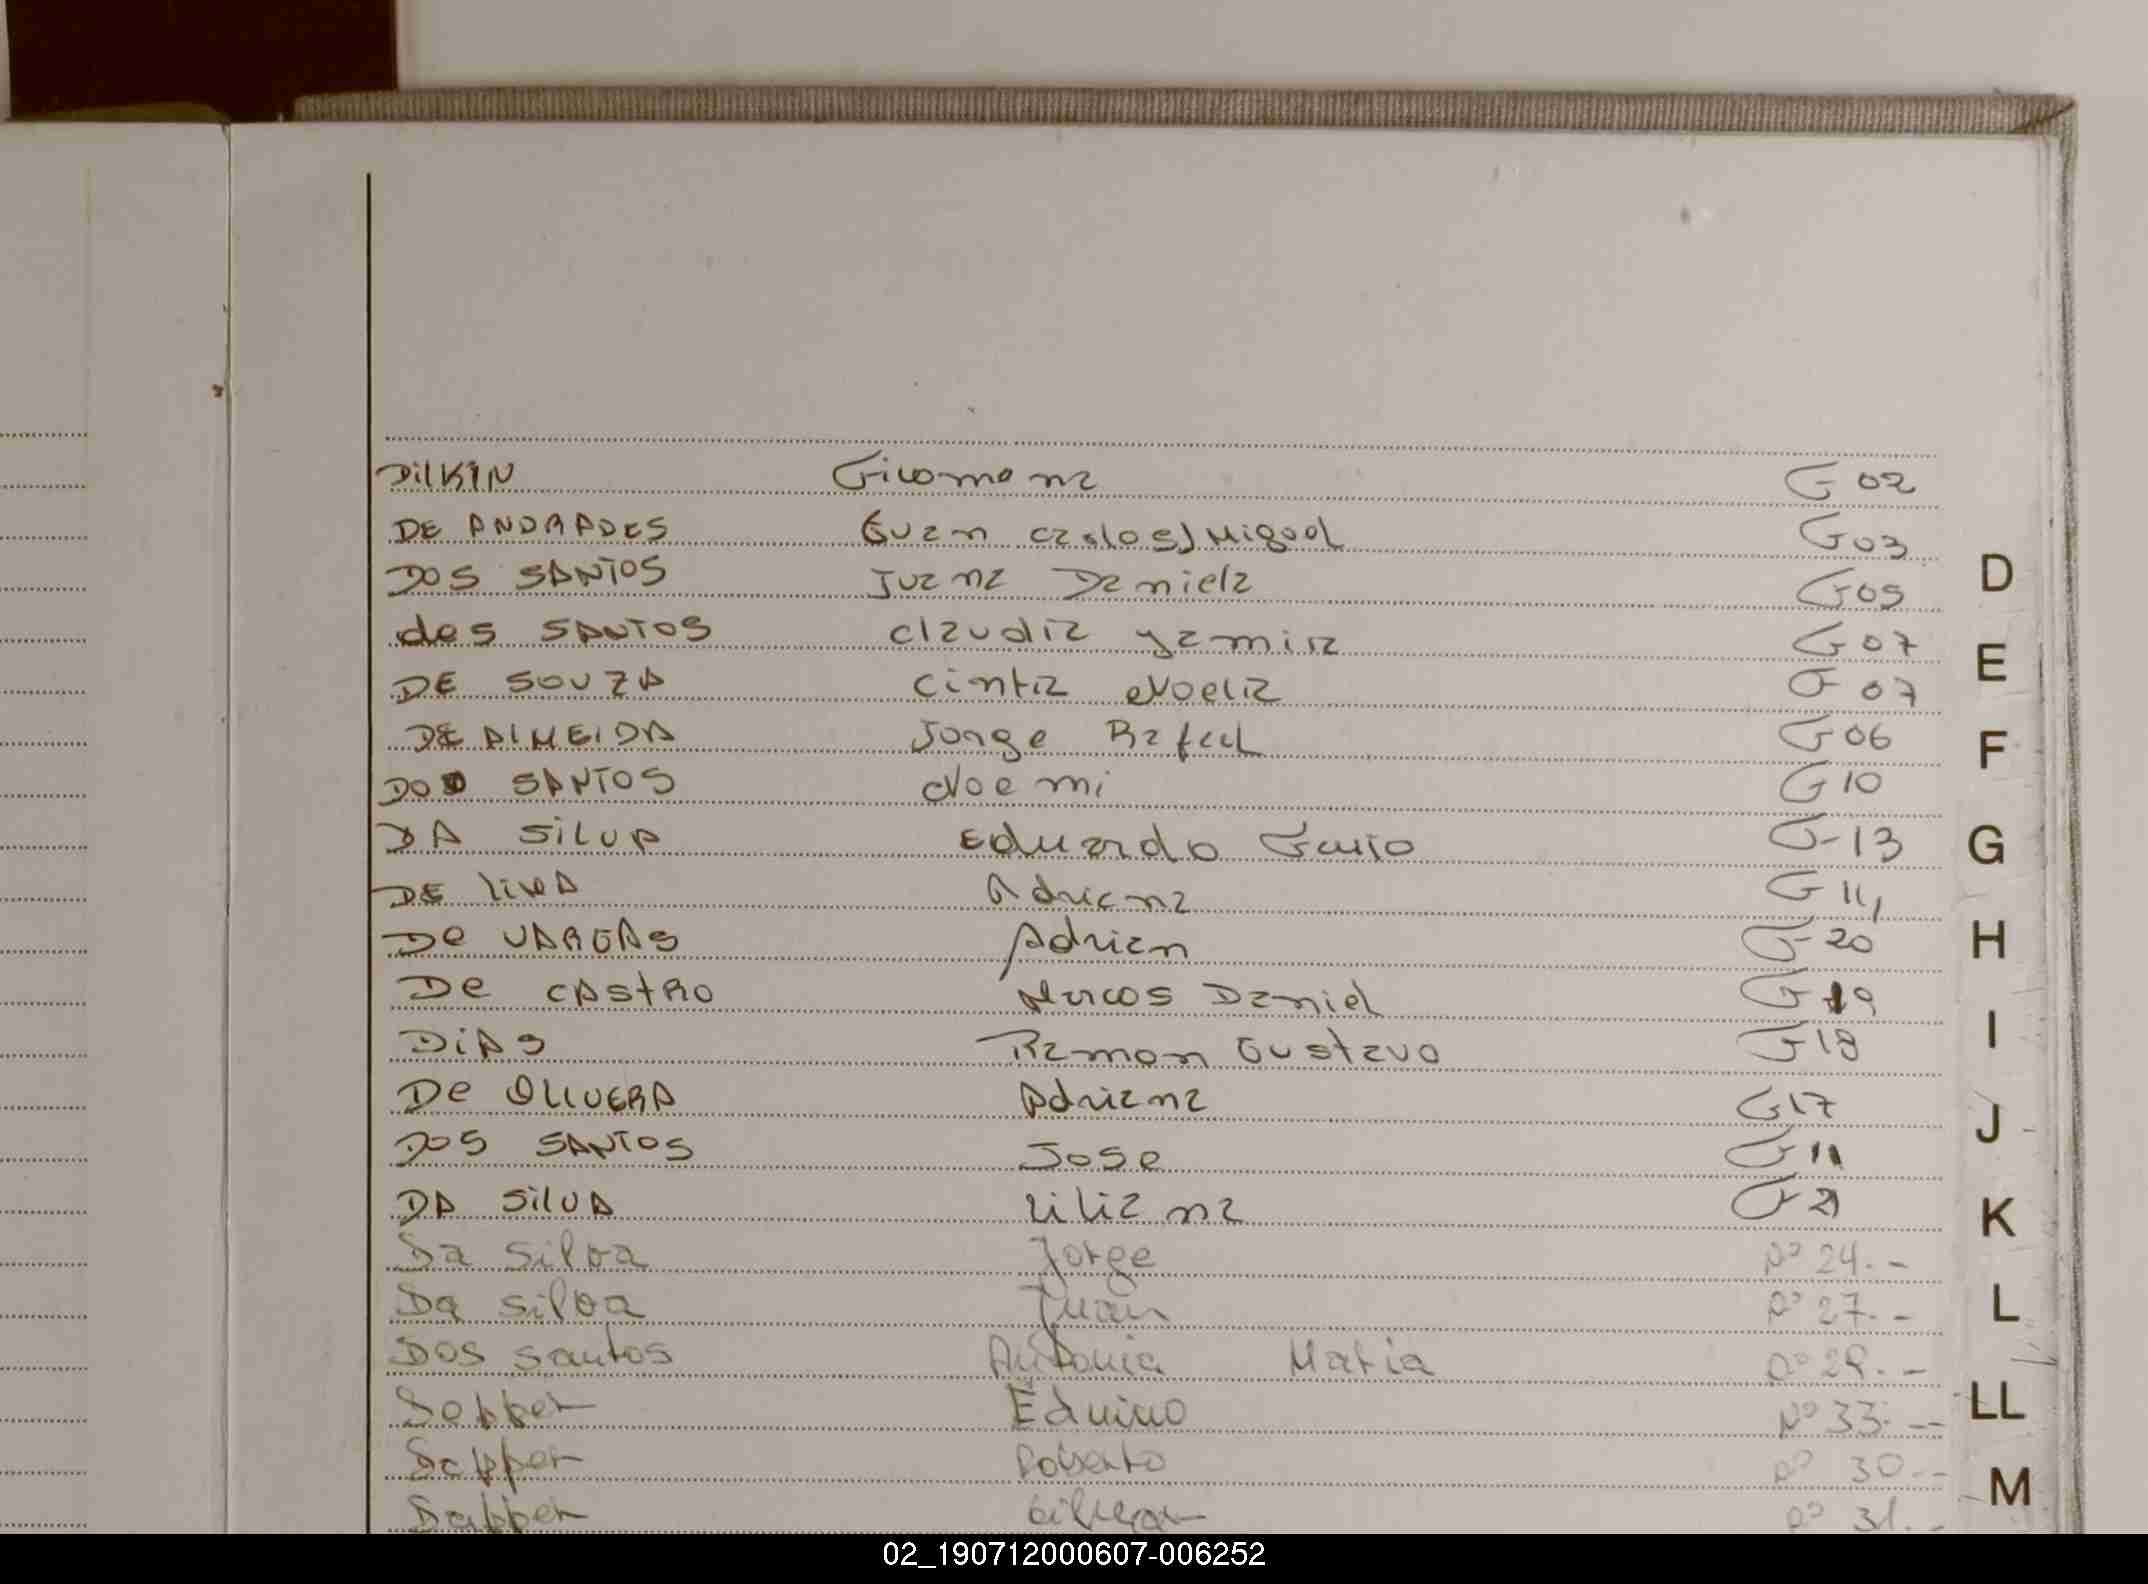 DilKiN Giromanz G 02
DE ANDRADES Guan Carlos) Miguel G03
DOS SANTOS Juana Daniela G05
dos SANTOS Claudia yamira G07
DE SOUZA Cintia Noelia G 07
DE ALMEIDA Jorge Rafael G06
DOS SANTOS Noemi G10
DA SilVA Eduardo G-13
DE liMA Adriana G
De VARGAS Adrian G-20
De CAStRO Marcos Daniel G19
DiAS Ramon Gustavo G18
De OLIVERA Adriana G17
DOS SANTOS Jose G11
DA SilVA Liliana G 21
Da Silva Jorge Nº 24.-
Da Silva Juan Nº 27.-
Dos Santos Antonia Maria Nº 29.-
Dapper Eduino Nº 33.-
Dapper Roberto Nº 30.-
Dapper Nº 31.-
D
E
F
G
H
I
J
K
L
LL
M
02_190712000607-006252